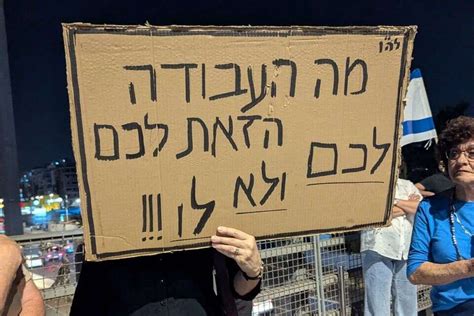 מה העבודה
הזאת לכם
לכם ולא לו !!!